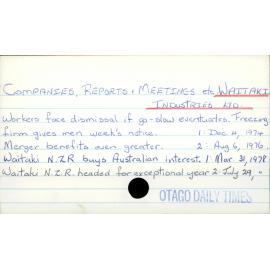 COMPANIES, REPORTS & MEETINGS etc WAITAKI
INDUSTRIES LTD.
Workers face dismissal if go-slow eventuates. Freezing
firm gives men week's notice. 1: Dec 4, 1974
Merger benefits even greater. 2: Aug 6, 1976.
Waitaki N.Z.R buys Australian interest. 1: Mar 31, 1978
Waitaki N.Z.R. headed for exceptional year 2: July 29, "
OTAGO DAILY TIMES